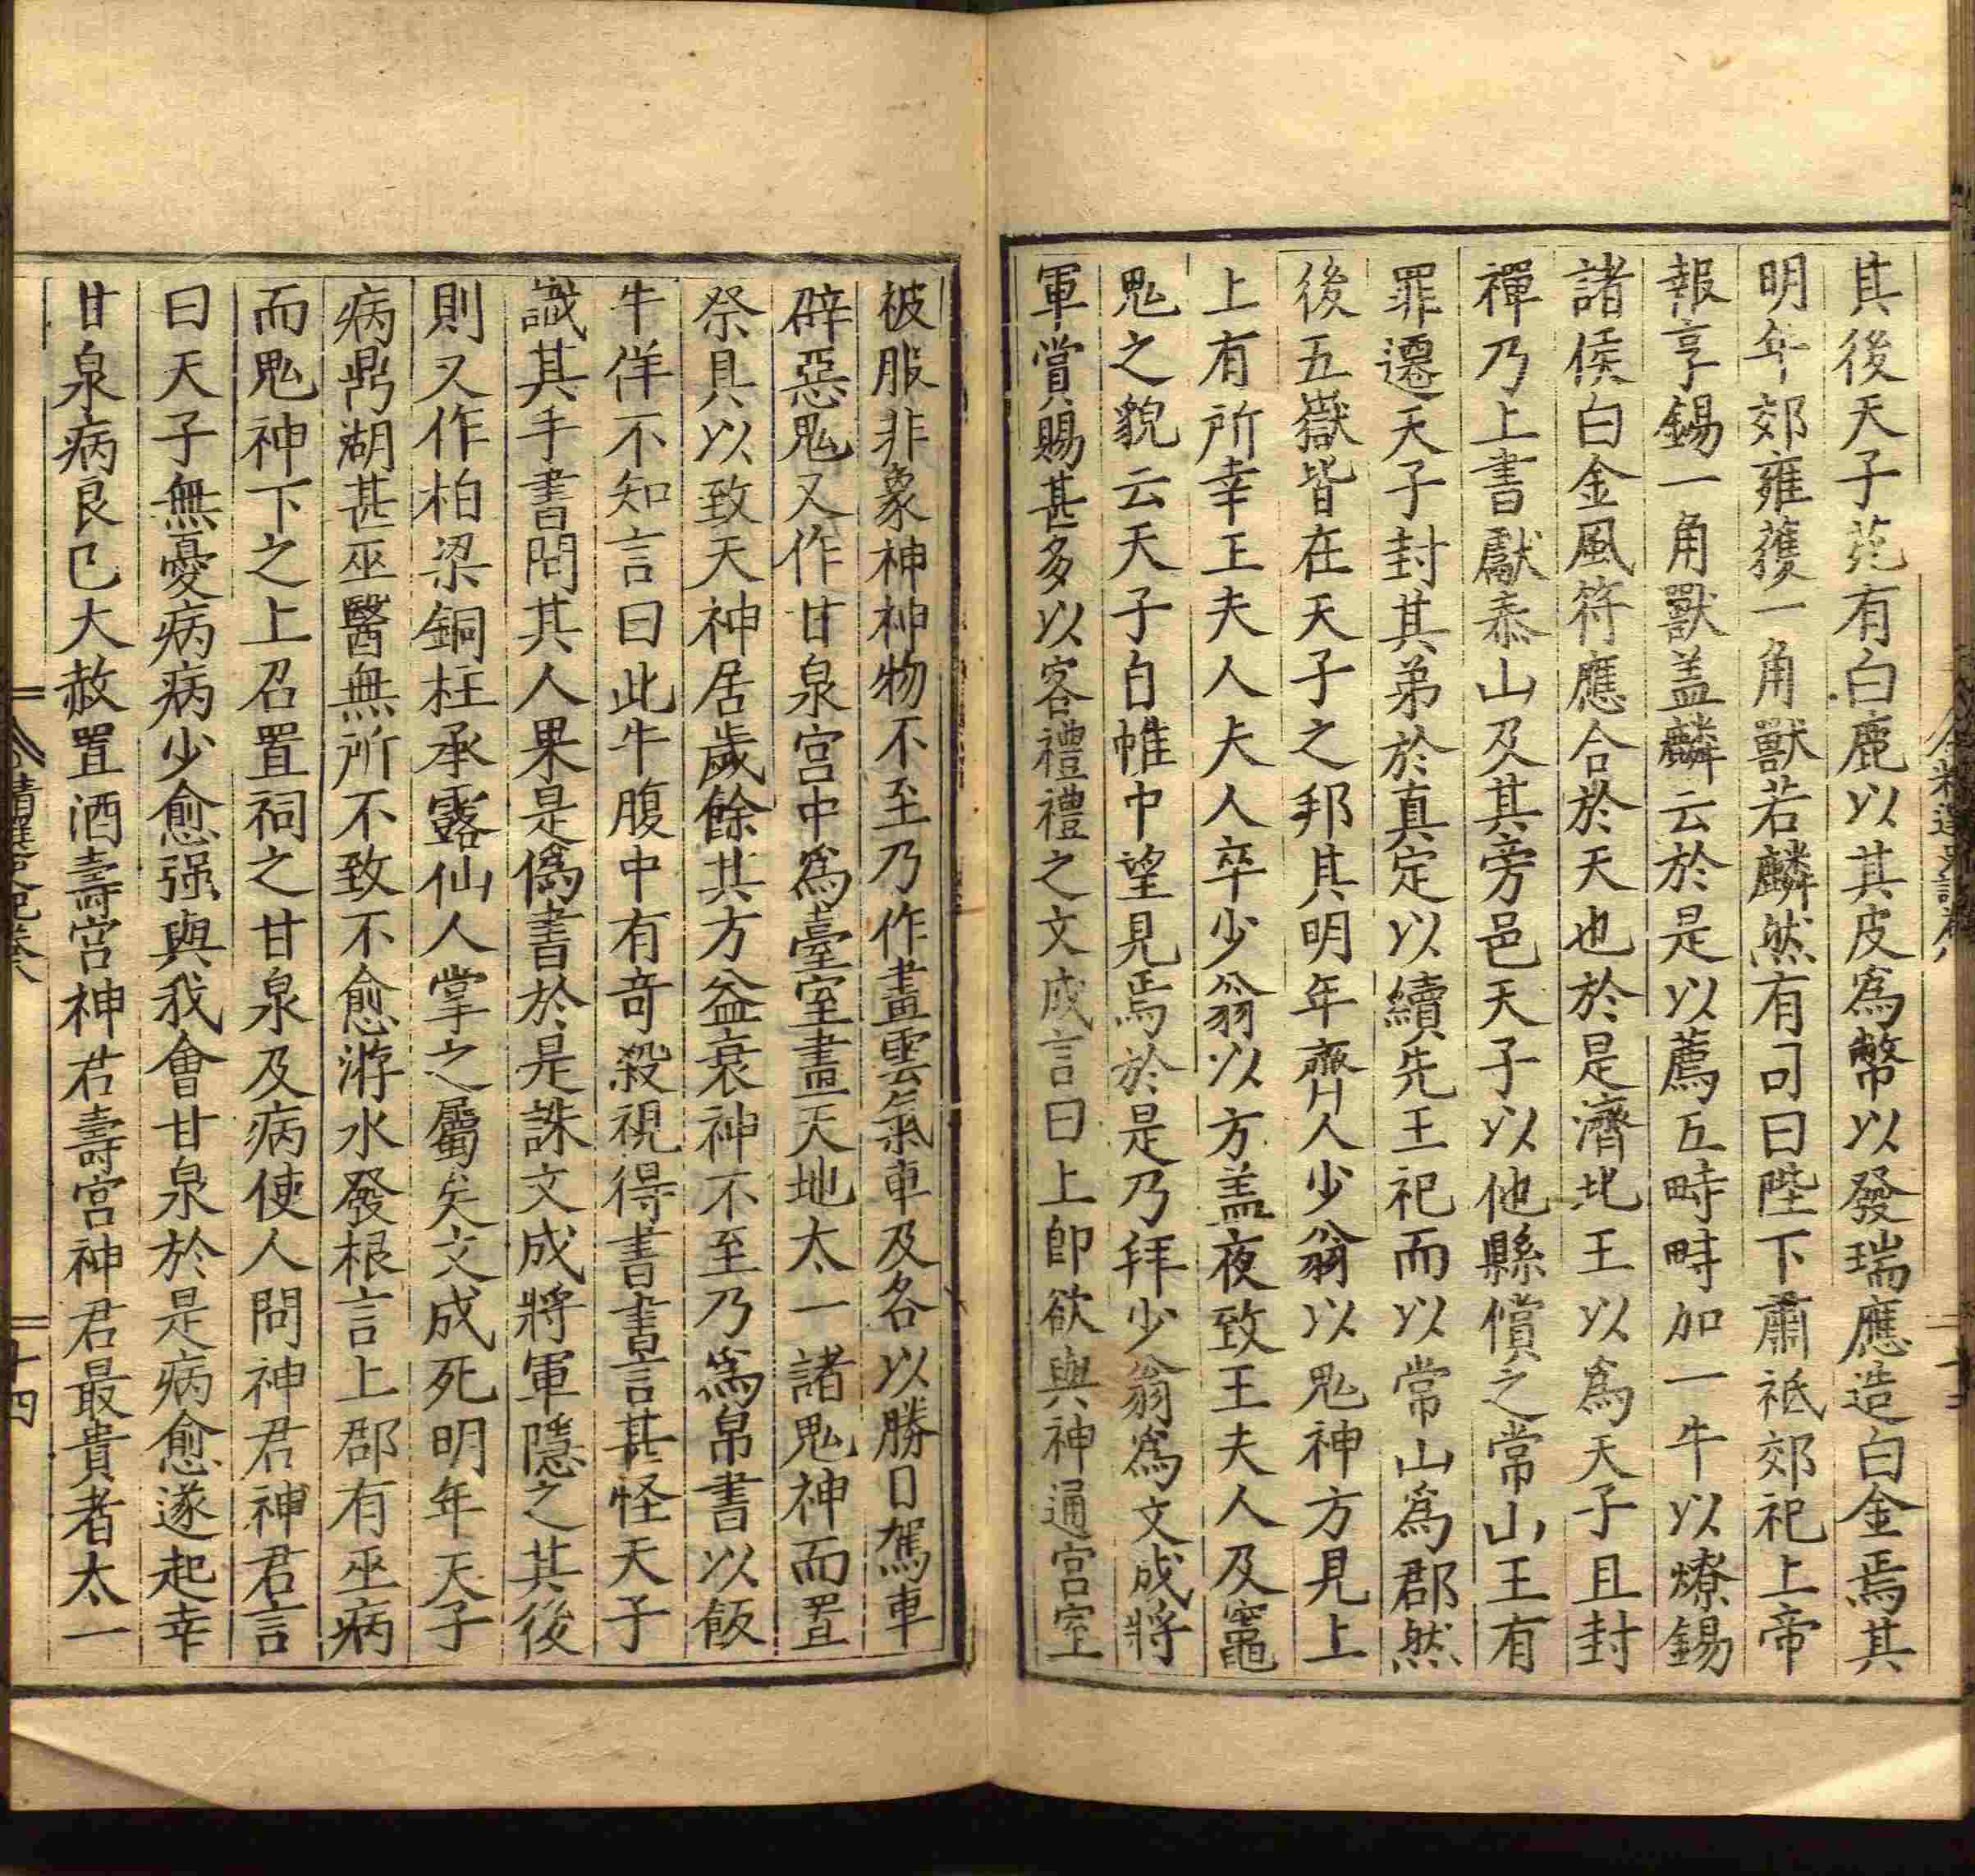 其後天子苑有白鹿以其皮為幣以發瑞應造白金焉其
明年郊雍獲一角獸若麟然有司曰陛下肅祗郊祀上帝
報享錫一角獸盖麟云於是以薦五畤畤加一牛以燎錫
諸侯白金風符應合於天也於是濟北王以為天子且封
禪乃上書獻泰山及其旁邑天子以他縣償之常山王有
罪遷天子封其弟於真定以續先王祀而以常山為郡然
後五嶽皆在天子之邦其明年齊人少翁以鬼神方見上
上有所幸王夫人夫人卒少翁以方盖夜致王夫人及竈
鬼之貌云天子自帷中望見焉於是乃拜少翁為文成將
軍賞賜甚多以客禮禮之文成言曰上卽欲與神通宮室
被服非象神神物不至乃作畫雲氣車及各以勝日駕車
辟惡鬼又作甘泉宮中為臺室畫天地太一諸鬼神而置
祭具以致天神居歲餘其方益衰神不至乃為帛書以飯
牛佯不知言曰此牛腹中有奇殺視得書書言甚怪天子
識其手書問其人果是偽書於是誅文成將軍隱之其後
則又作柏梁銅柱承露仙人掌之屬矣文成死明年天子
病鼎湖甚巫醫無所不致不愈游水發根言上郡有巫病
而鬼神下之上召置祠之甘泉及病使人問神君神君言
曰天子無憂病病少愈强與我會甘泉於是病愈遂起幸
甘泉病良已大赦置酒壽宮神君壽宮神君最貴者太一
十四